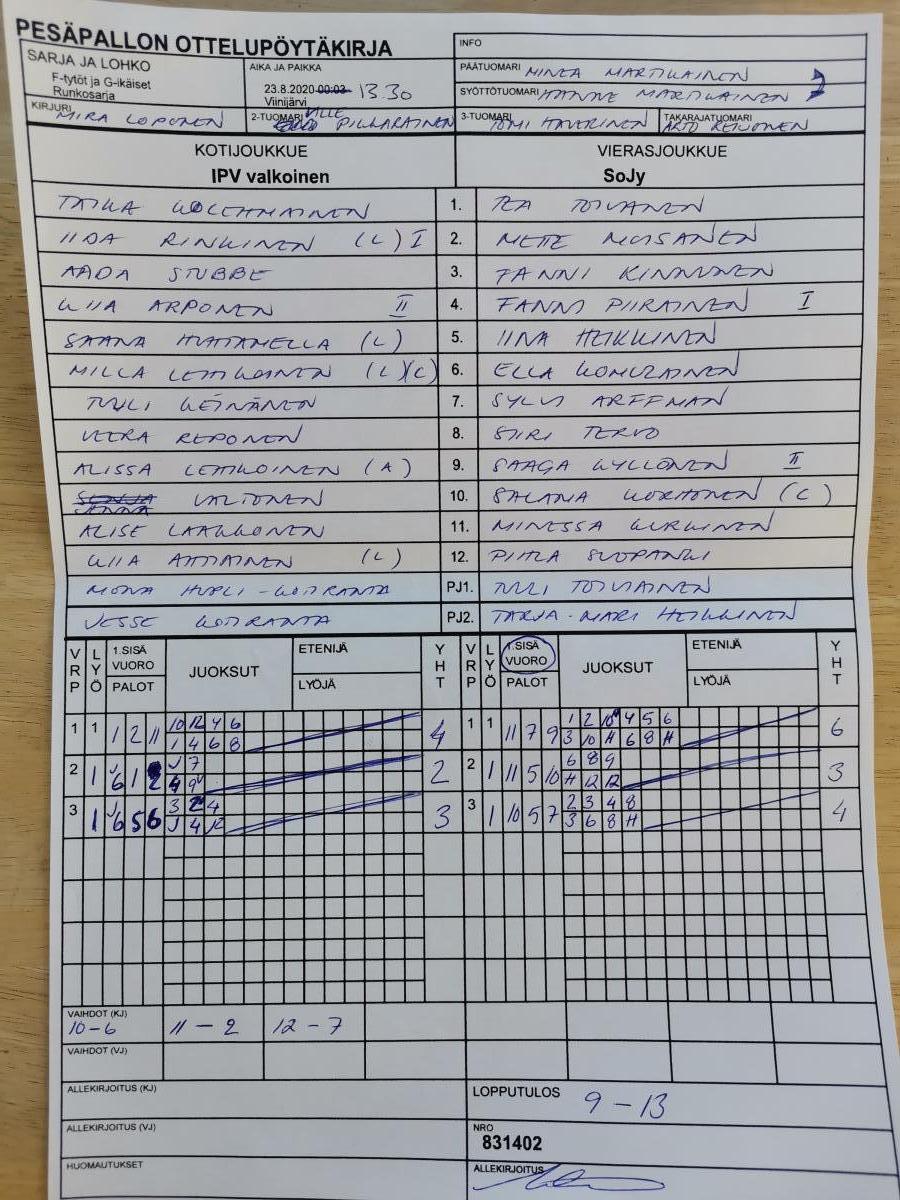 PESÄPALLON OTTELUPÖYTÄKIRJA
INFO
SARJA JA LOHKO
F-tytöt ja G-ikäiset
Runkosarja
AIKA JA PAIKKA
23.8.2020 00:03 13 30
Viinijärvi
PÄÄTUOMARI MINEA MARTIKAINEN
SYÖTTÖTUOMARI MARTIKAINEN
KIRJURI MIRA LOPONEN
2-TUOMARI VILLE PIILARAINEN
3-TUOMARI TOMI HAVERINEN
TAKARAJATUOMARI ARTO REIJONEN
KOTIJOUKKUE VIERASJOUKKUE
IPV valkoinen SoJy
TAIKA KOLEHMAINEN 1. TEA TOIVANEN
IIDA RINKINEN (L) I 2. METTE MUSANEN
AADA STUBBE 3. FANNI KINNUNEN
KIIA ARPONEN II 4. FANNI PIIRAINEN I
SAANA (L) 5. IINA HEIKKINEN
MILLA LEHIKOINEN (L)(C) 6. ELLA KOMULAINEN
TUULI HEINÄNEN 7. SYLVI ARFFMAN
VEERA REPONEN 8. SIIRI TERVO
ALISSA LEHIKOINEN (A) 9. SAAGA KYLLÖNEN II
JENNA VALTONEN 10. KORHONEN (C)
ALISE LAAKKONEN 11. MINESSA KURKINEN
KIIA AHTIAINEN (L) 12. PIITLA SUOPANKI
MONA HUPLI-KOTIRANTA PJ1. TUULI TOIVIAINEN
JESSE KOTIRANTA PJ2. TARJA-MARI HEIKKINEN
VRP LYÖ 1.SISÄ VUORO PALOT JUOKSUT ETENIJÄ LYÖJÄ YHT VRP LYÖ 1.SISÄ VUORO PALOT JUOKSUT ETENIJÄ LYÖJÄ YHT
1 1 1 2 11 10 12 4 6 4 1 1 11 7 9 1 2 10 4 5 6 6
1 4 6 8 3 10 H 6 8 H
2 1 6 1 2 J 7 2 2 1 11 5 10 6 8 9 3
4 9 H 12 12
3 1 6 5 6 3 2 4 3 3 1 10 5 7 2 3 4 8 4
J 4 3 6 8 H
VAIHDOT (KJ)
10-6 11-2 12-7
VAIHDOT (VJ)
ALLEKIRJOITUS (KJ)
LOPPUTULOS 9-13
ALLEKIRJOITUS (VJ)
NRO
831402
HUOMAUTUKSET
ALLEKIRJOITUS